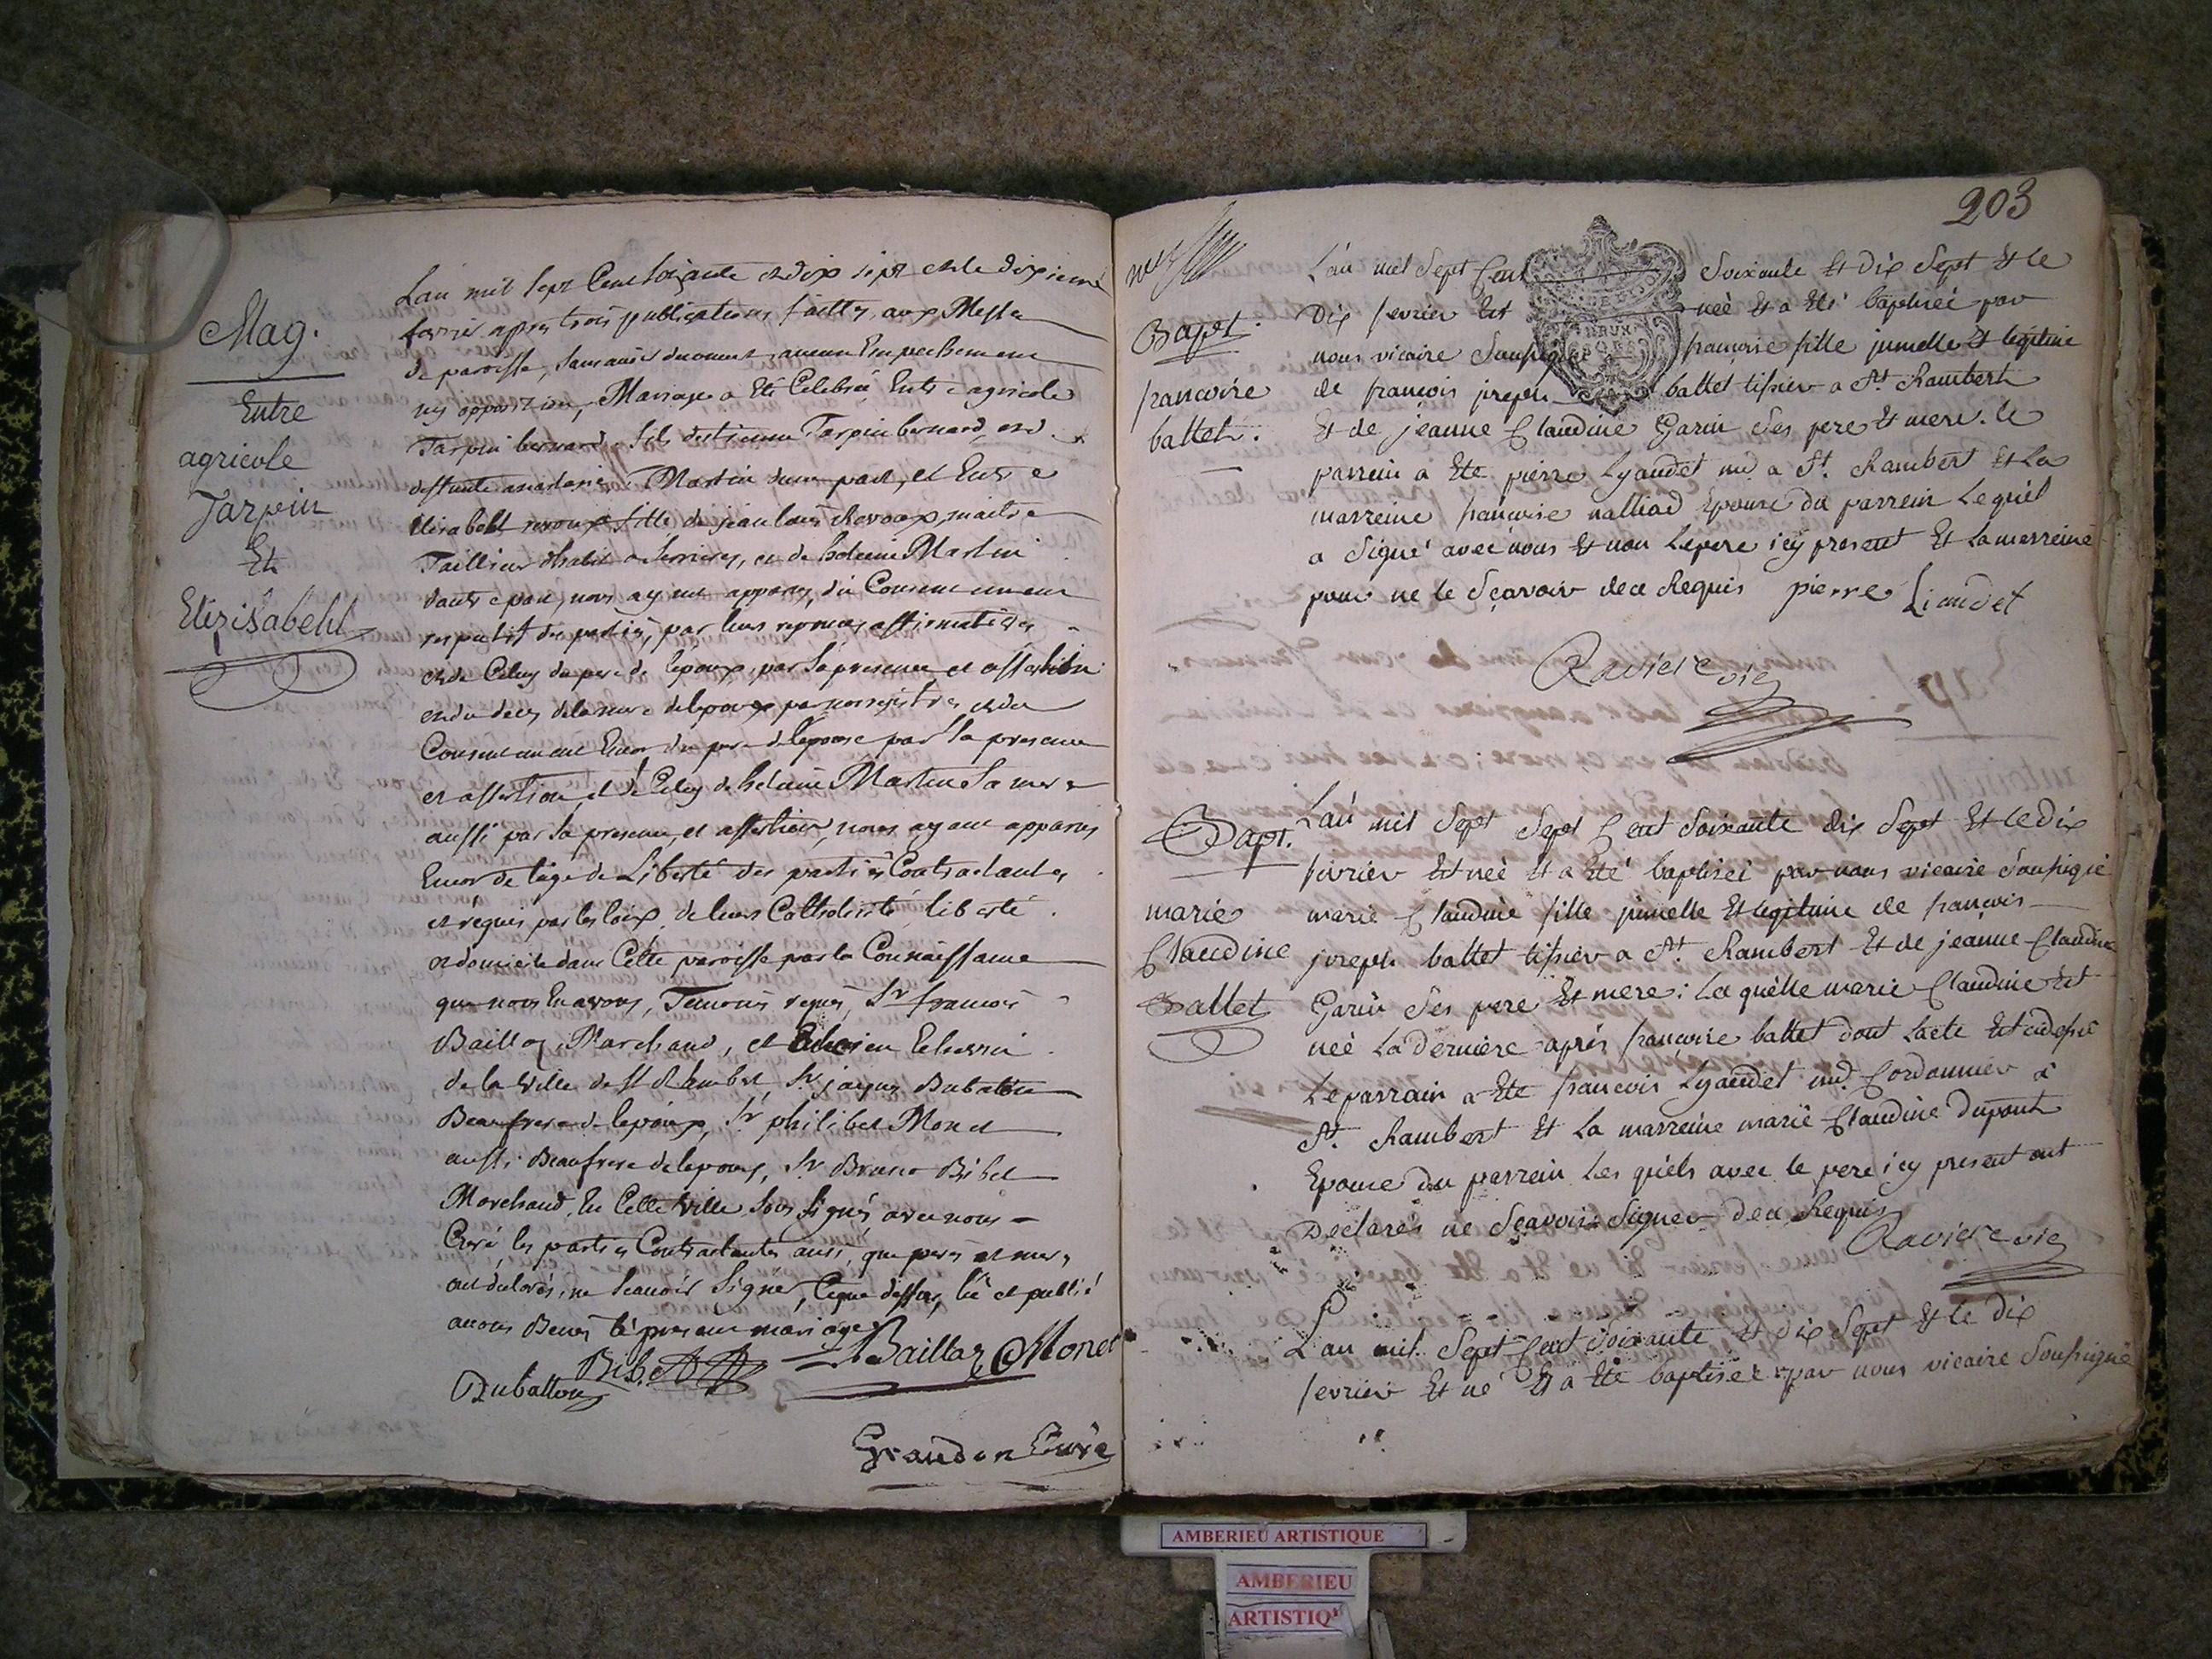 Mag.
Entre
agricole
Tarpin
Et
Elizisabeht
Lan mil sept Cent soixante et dix sept et le dixieme
fevrier apres trois publications faittes aux Messe
de paroisse, sans avoir decouvert aucun Empechement
ny opposition, Mariage a Eté Celebré Entre agricole
Tarpin bernard fils d'estienne Tarpin bernard, et de
deffunte Martin d'une part, et Entre
Elisabeht fille de jean louis maitre
Taillieur d'habit a Serrieres, et de heleine Martin
dautre part, nous ayant apparus, du Consentement
respectif des parties, par leurs reponces affirmatives
et de Celuy du pere de lepoux, par sa presence et assertion
et du deces de la mere de lepoux par nos registres et du
Consentement Encor du pere de lepouse par sa presence
et assertion, et de Celuy de heleine Martin sa mere
aussi par sa presence, et assertion, nous ayant apparus
Encor de lage de Liberté des parties Contractantes
et requis par les loix, de leurs Catholicité, liberté
et domicile dans Cette paroisse par la Connaissance
que nous En avons, Temoins requis, Sr francois
Bailloz, Marchand, et Echevin
de la Ville de St Rambet, Sr jaques Dubatton
Beaufrere de lepoux, Sr philibet Monet
aussi Beaufrere de lepoux, Sr Bruno Bibet
Marchand, En Cette Ville sous signés avec nous
Curé, les parties Contractantes ainsi, que peres et meres
ont declarés, ne scavoir signer, Ceque dessus, lû et publié
avons Benis le present mariage
Bibet Bailloz Monet
Dubatton
Grandon Curé
203
Bapt.
francoise
battet.
L'an mil Sept Cent Soixante Et dix Sept Et le
Dix fevrier Est neé Et a Eté baptiseé par
nous vicaire Soussigné françoise fille jumelle Et legitime
de françois joseph battet tissier a St. Rambert
Et de jeanne Claudine Garin Ses pere Et mere. le
parrein a Ete pierre Lyaudet md a St. Rambert Et La
marreine françoise nalliod Epouse du parrein Lequel
a Signé avec nous Et non Le pere icy present Et La marreine
pour ne le Sçavoir de ce Requis pierre Liaudet
Raviere vic
Bapt.
marie
Claudine
Battet
L'an mil Sept Sept Cent Soixante dix Sept Et le dix
fevrier Est neé Et a Eté baptiseé par nous vicaire Soussigné
marie Claudine fille jumelle Et legitime de françois
joseph battet tissier a St. Rambert Et de jeanne Claudine
Garin Ses pere Et mere; La quelle marie Claudine Est
neé La derniere aprés françoise battet dont Lacte Est cidessus
Le parrain a Ete francois Lyaudet md. Cordonnier a
St. Rambert Et La marreine marie Claudine Dupont
Epouse du parrein Les quels avec le pere icy present ont
Declarés ne Sçavoir Signer de ce Requis
Raviere vic
L'an mil Sept Cent Soixante Et dix Sept Et le Dix
fevrier Est né Et a Eté baptiseé par nous vicaire Soussigné
AMBERIEU ARTISTIQUE
AMBERIEU
ARTISTIQ